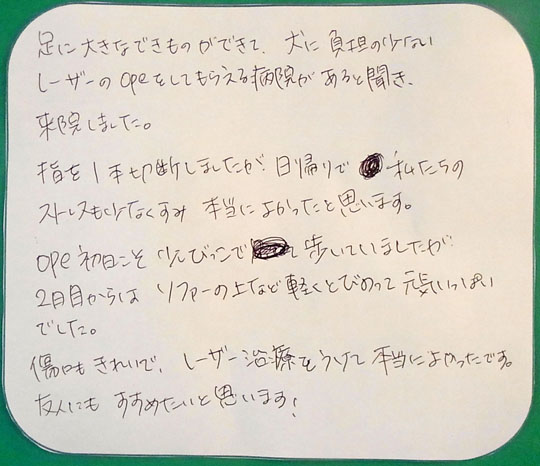 足に大きなできものができて、犬に負担の少ない
レーザーのopeをしてもらえる病院があると聞き、
来院しました。
指を1本切断しましたが、日帰りで 私たちの
ストレスも少なくすみ 本当によかったと思います。
ope初日こそ 少しびっこで 歩いていましたが
2日目からは ソファーの上など軽くとびのって元気いっぱい
でした。
傷口もきれいで、レーザー治療をうけて本当によかったです。
友人にも すすめたいと思います!